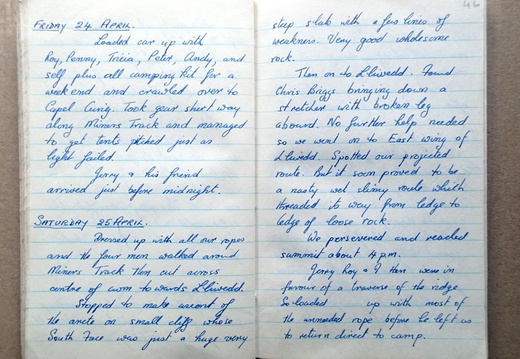 FRIDAY 24 APRIL.
Loaded car up with
Roy, Penny, Tricia, Peter, Andy, and
self plus all camping kit for a
weekend and crawled over to
Capel Curig. Took gear short way
along Miners Track and managed
to get tents pitched just as
light failed.
Gerry & his friend
arrived just before midnight.
SATURDAY 25 APRIL.
Dressed up with all our ropes
and the four men walked around
Miners Track then cut across
centre of cwm towards Lliwedd.
Stopped to make ascent of
the arete on small cliff whose
South Face was just a huge very
46
steep slab with a few lines of
weakness. Very good wholesome
rock.
Then on to Lliwedd. Found
Chris Briggs bringing down a
stretcher with broken leg
aboard. No further help needed
so we went on to East wing of
Lliwedd. Spotted our projected
route. But it soon proved to be
a nasty wet slimy route which
threaded its way from ledge to
ledge of loose rock.
We persevered and reached
summit about 4 p.m.
Gerry Roy & I then were in
favour of a traverse of the ridge
So loaded up with most of
the unneeded rope before he left us
to return direct to camp.